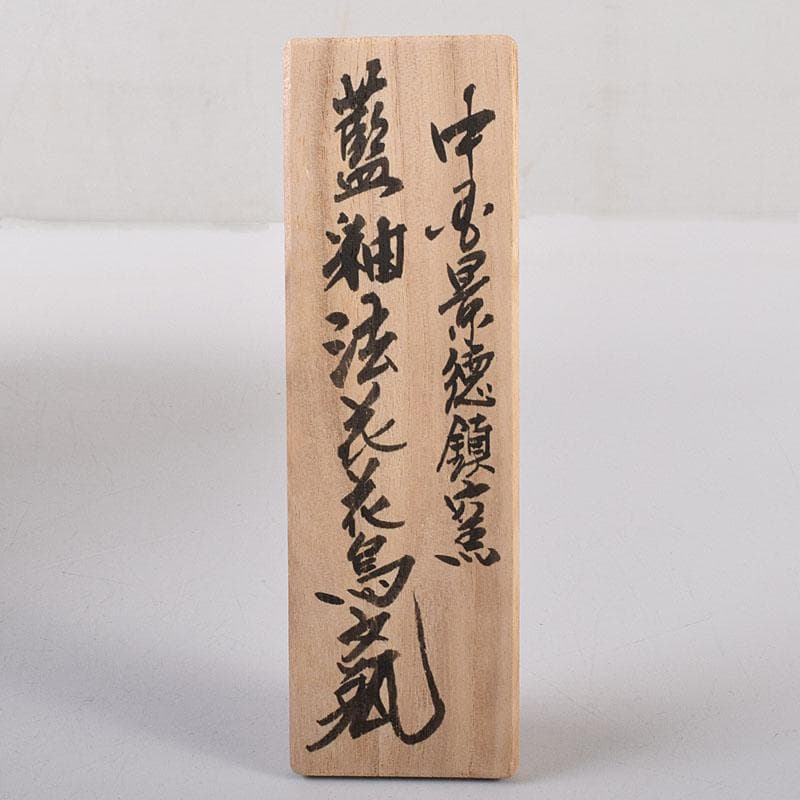 中国景徳鎮窯
藍釉法花花鳥文瓶